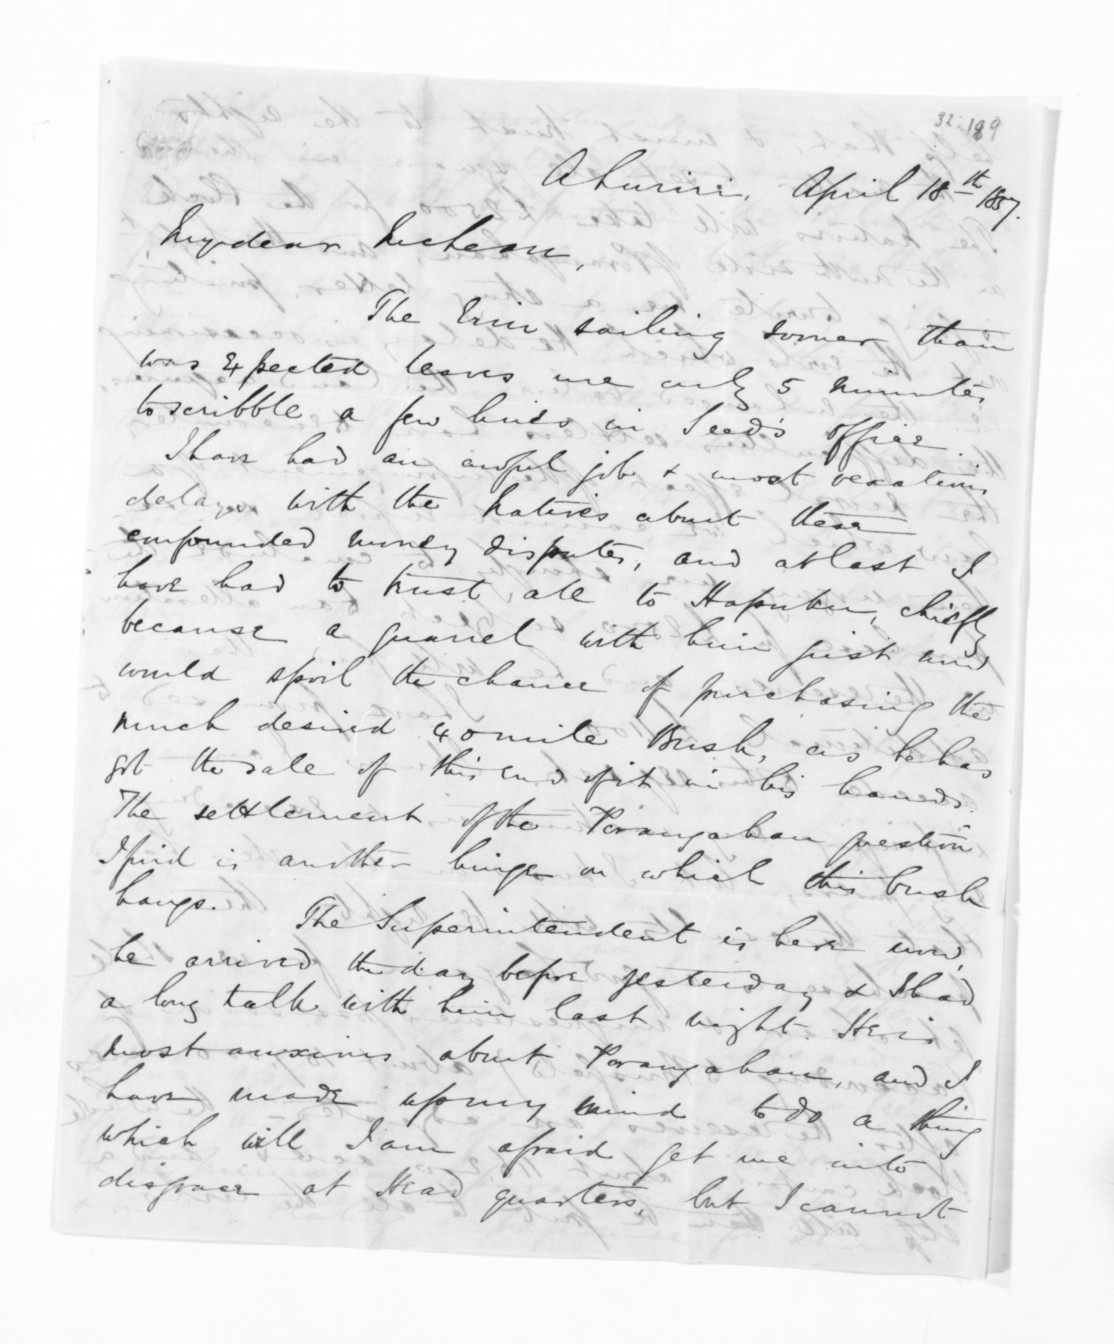 32-189
Ahuriri, April 18th 1857.
My dear McLean,
The Erin sailing sooner than
was expected leaves me only 5 minutes
to scribble a few lines in Seed's office
I have had an awful job & most vexatious
delays with the Natives about these
confounded money disputes, and at last I
have had to trust all to Hapuku, chiefly
because a quarrel with him just now
would spoil the chance of purchasing the
much desired 40 mile Bush, as he has
got the sale of this end of it in his hands.
The settlement of the Porangahau question
I find is another hinge on which this bush
hangs. The Superintendent is here now,
he arrived the day before yesterday & I had
a long talk with him last night. He is
most anxious about Porangahau, and I
have made up my mind to do a thing
which will I am afraid get me into
disgrace at Head quarters, but I cannot